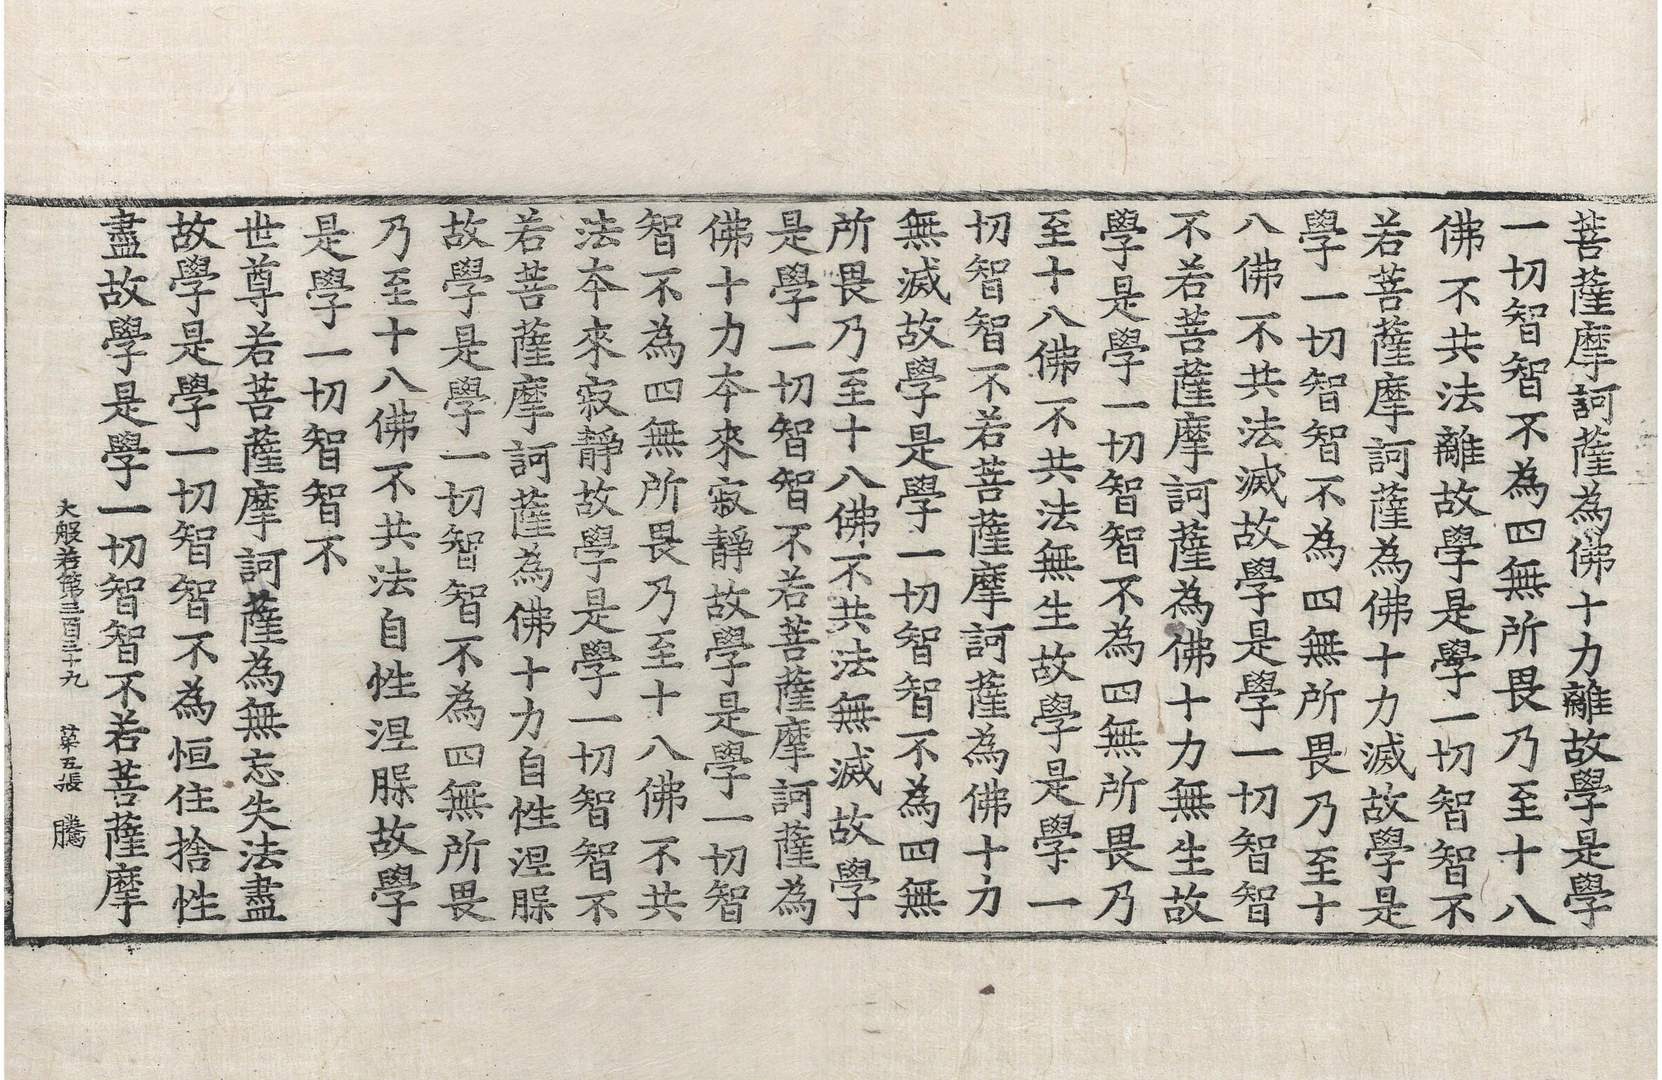 菩薩摩訶薩為佛十力離故學是學
一切智智不為四無所畏乃至十八
佛不共法離故學是學一切智智不
若菩薩摩訶薩為佛十力滅故學是
學一切智智不為四無所畏乃至十
八佛不共法滅故學是學一切智智
不若菩薩摩訶薩為佛十力無生故
學是學一切智智不為四無所畏乃
至十八佛不共法無生故學是學一
切智智不若菩薩摩訶薩為佛十力
無滅故學是學一切智智不為四無
所畏乃至十八佛不共法無滅故學
是學一切智智不若菩薩摩訶薩為
佛十力本來寂靜故學是學一切智
智不為四無所畏乃至十八佛不共
法本來寂靜故學是學一切智智不
若菩薩摩訶薩為佛十力自性涅槃
故學是學一切智智不為四無所畏
乃至十八佛不共法自性涅槃故學
是學一切智智不
世尊若菩薩摩訶薩為無忘失法盡
故學是學一切智智不為恒住捨性
盡故學是學一切智智不若菩薩摩
大般若第三百三十九 第五張 騰